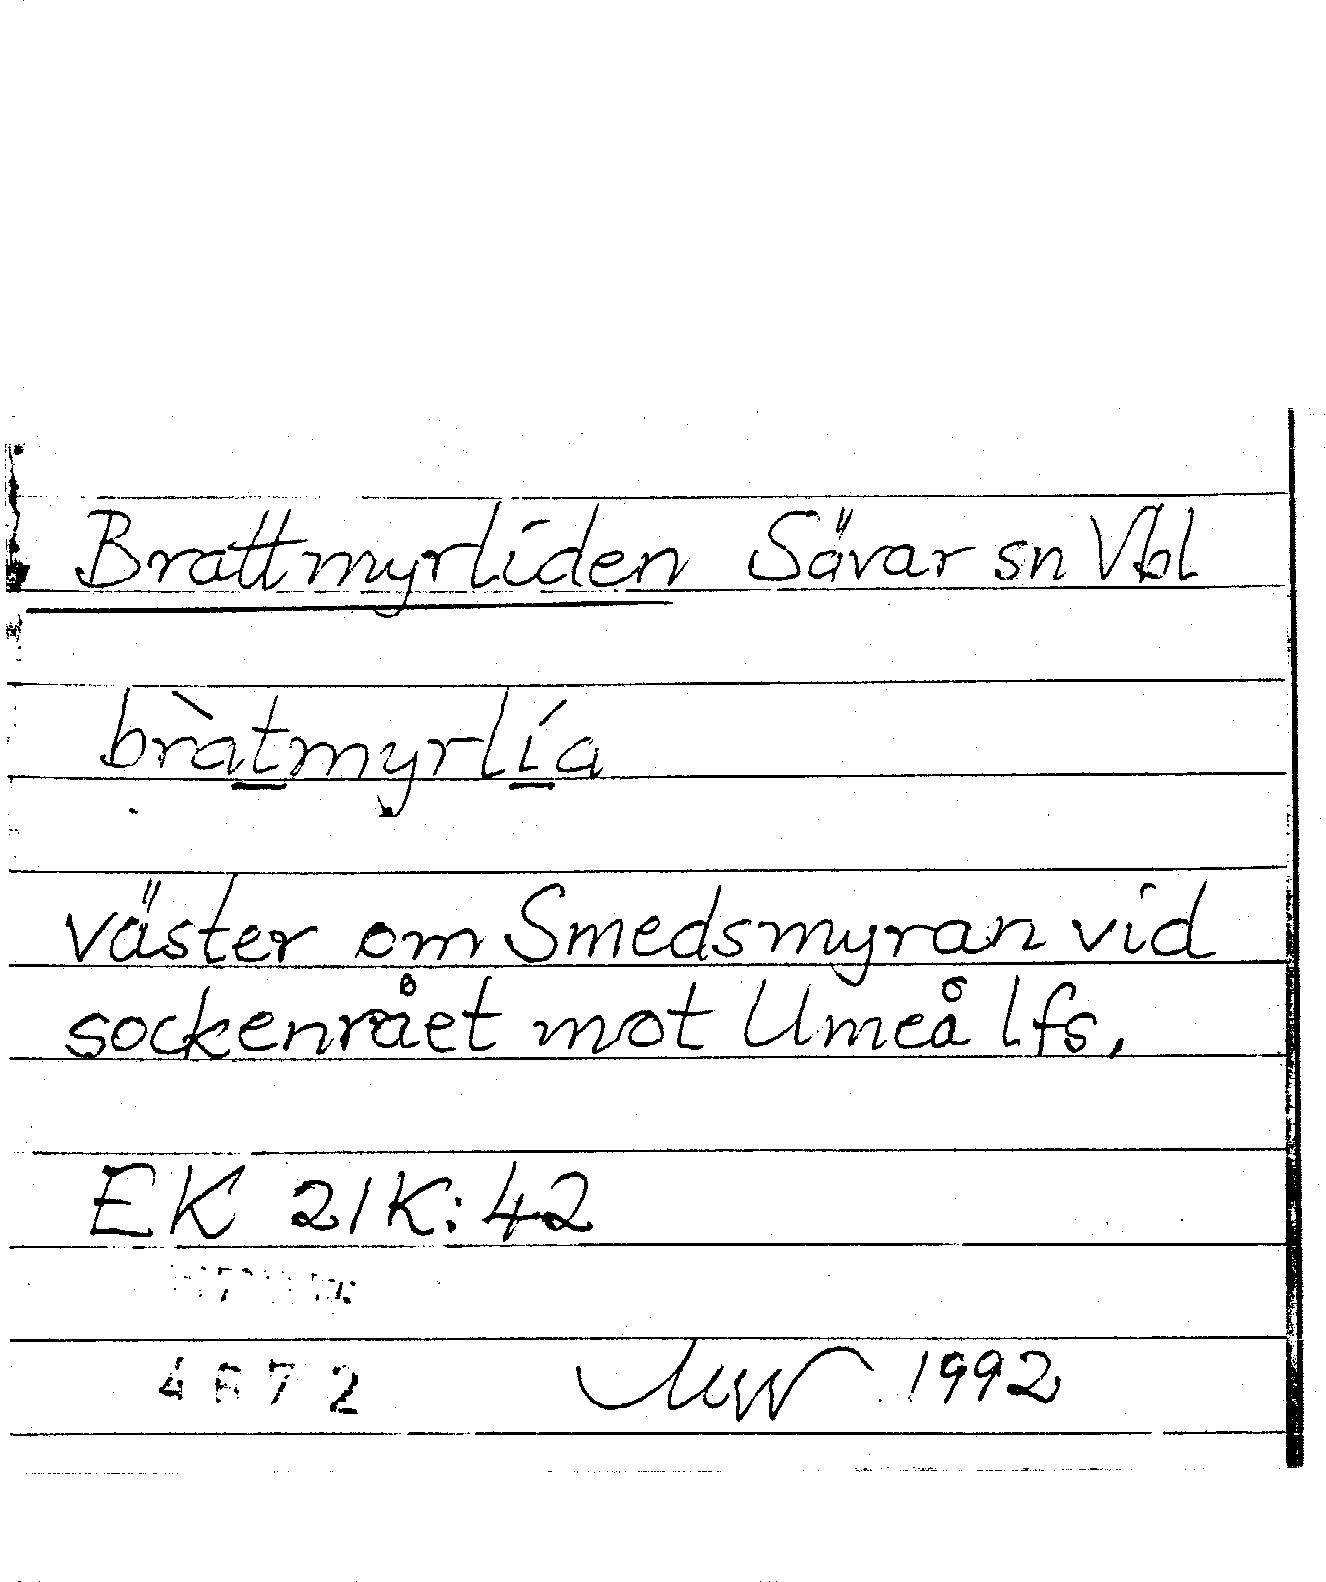 Brattmyrliden Sävar sn Vbl
bràtmyrlía
väster om Smedsmyran vid
sockenrået mot Umeå lfs.
EK 21K:42
4672 1992